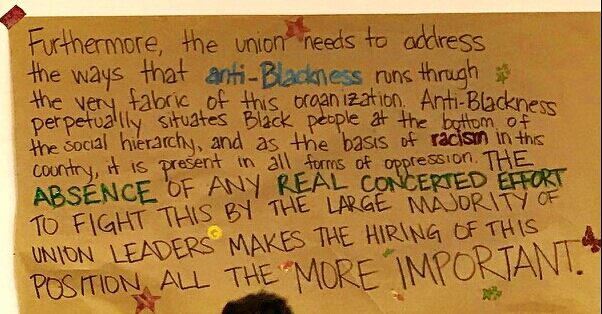 Furthermore, the union needs to address
the ways that anti-Blackness runs through
the very fabric of this organization. Anti-Blackness
perpetually situates Black people at the bottom of
the social hierarchy, and as the basis of racism in this
country, it is present in all forms of oppression. THE
ABSENCE OF ANY REAL CONCERTED EFFORT
TO FIGHT THIS BY THE LARGE MAJORITY OF
UNION LEADERS MAKES THE HIRING OF THIS
POSITION ALL THE MORE IMPORTANT.